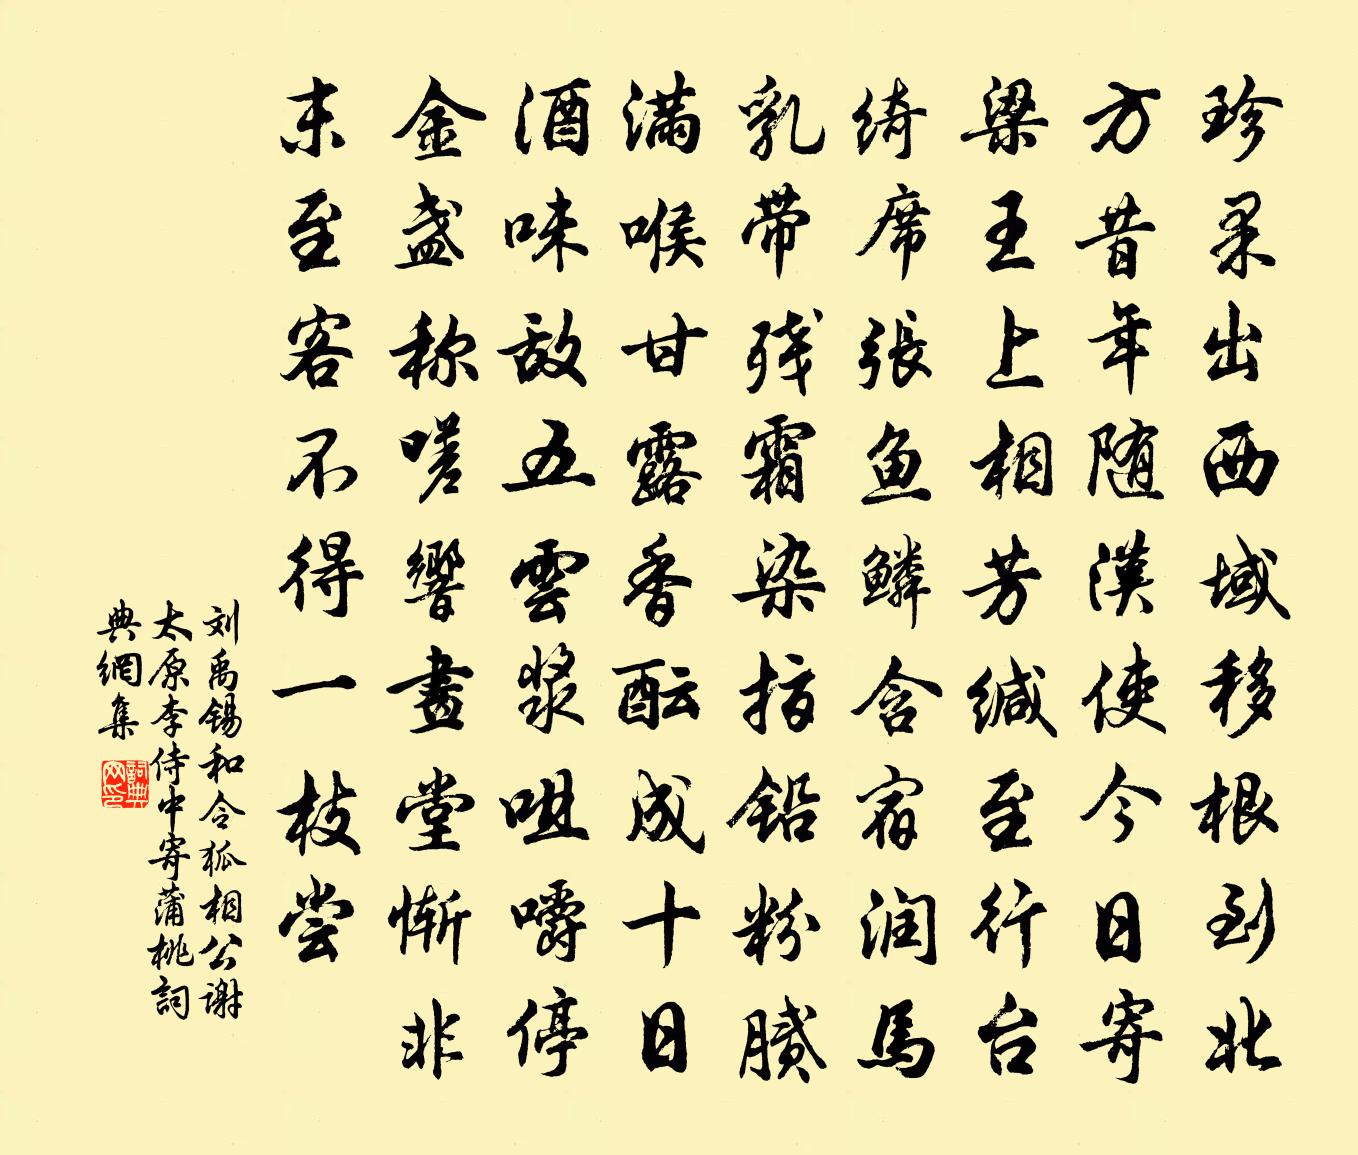 珍果出西域移根到北
方昔年随漢使今日寄
梁王上相芳缄至行台
绮席張鱼鳞含宿润馬
乳带残霜染指铅粉腻
满喉甘露香酝成十日
酒味敌五雲浆咀嚼停
金盏称嗟響畫堂慚非
末至客不得一枝尝
刘禹锡和令狐相公谢
太原李侍中寄蒲桃詞
典網集
詞典
网印